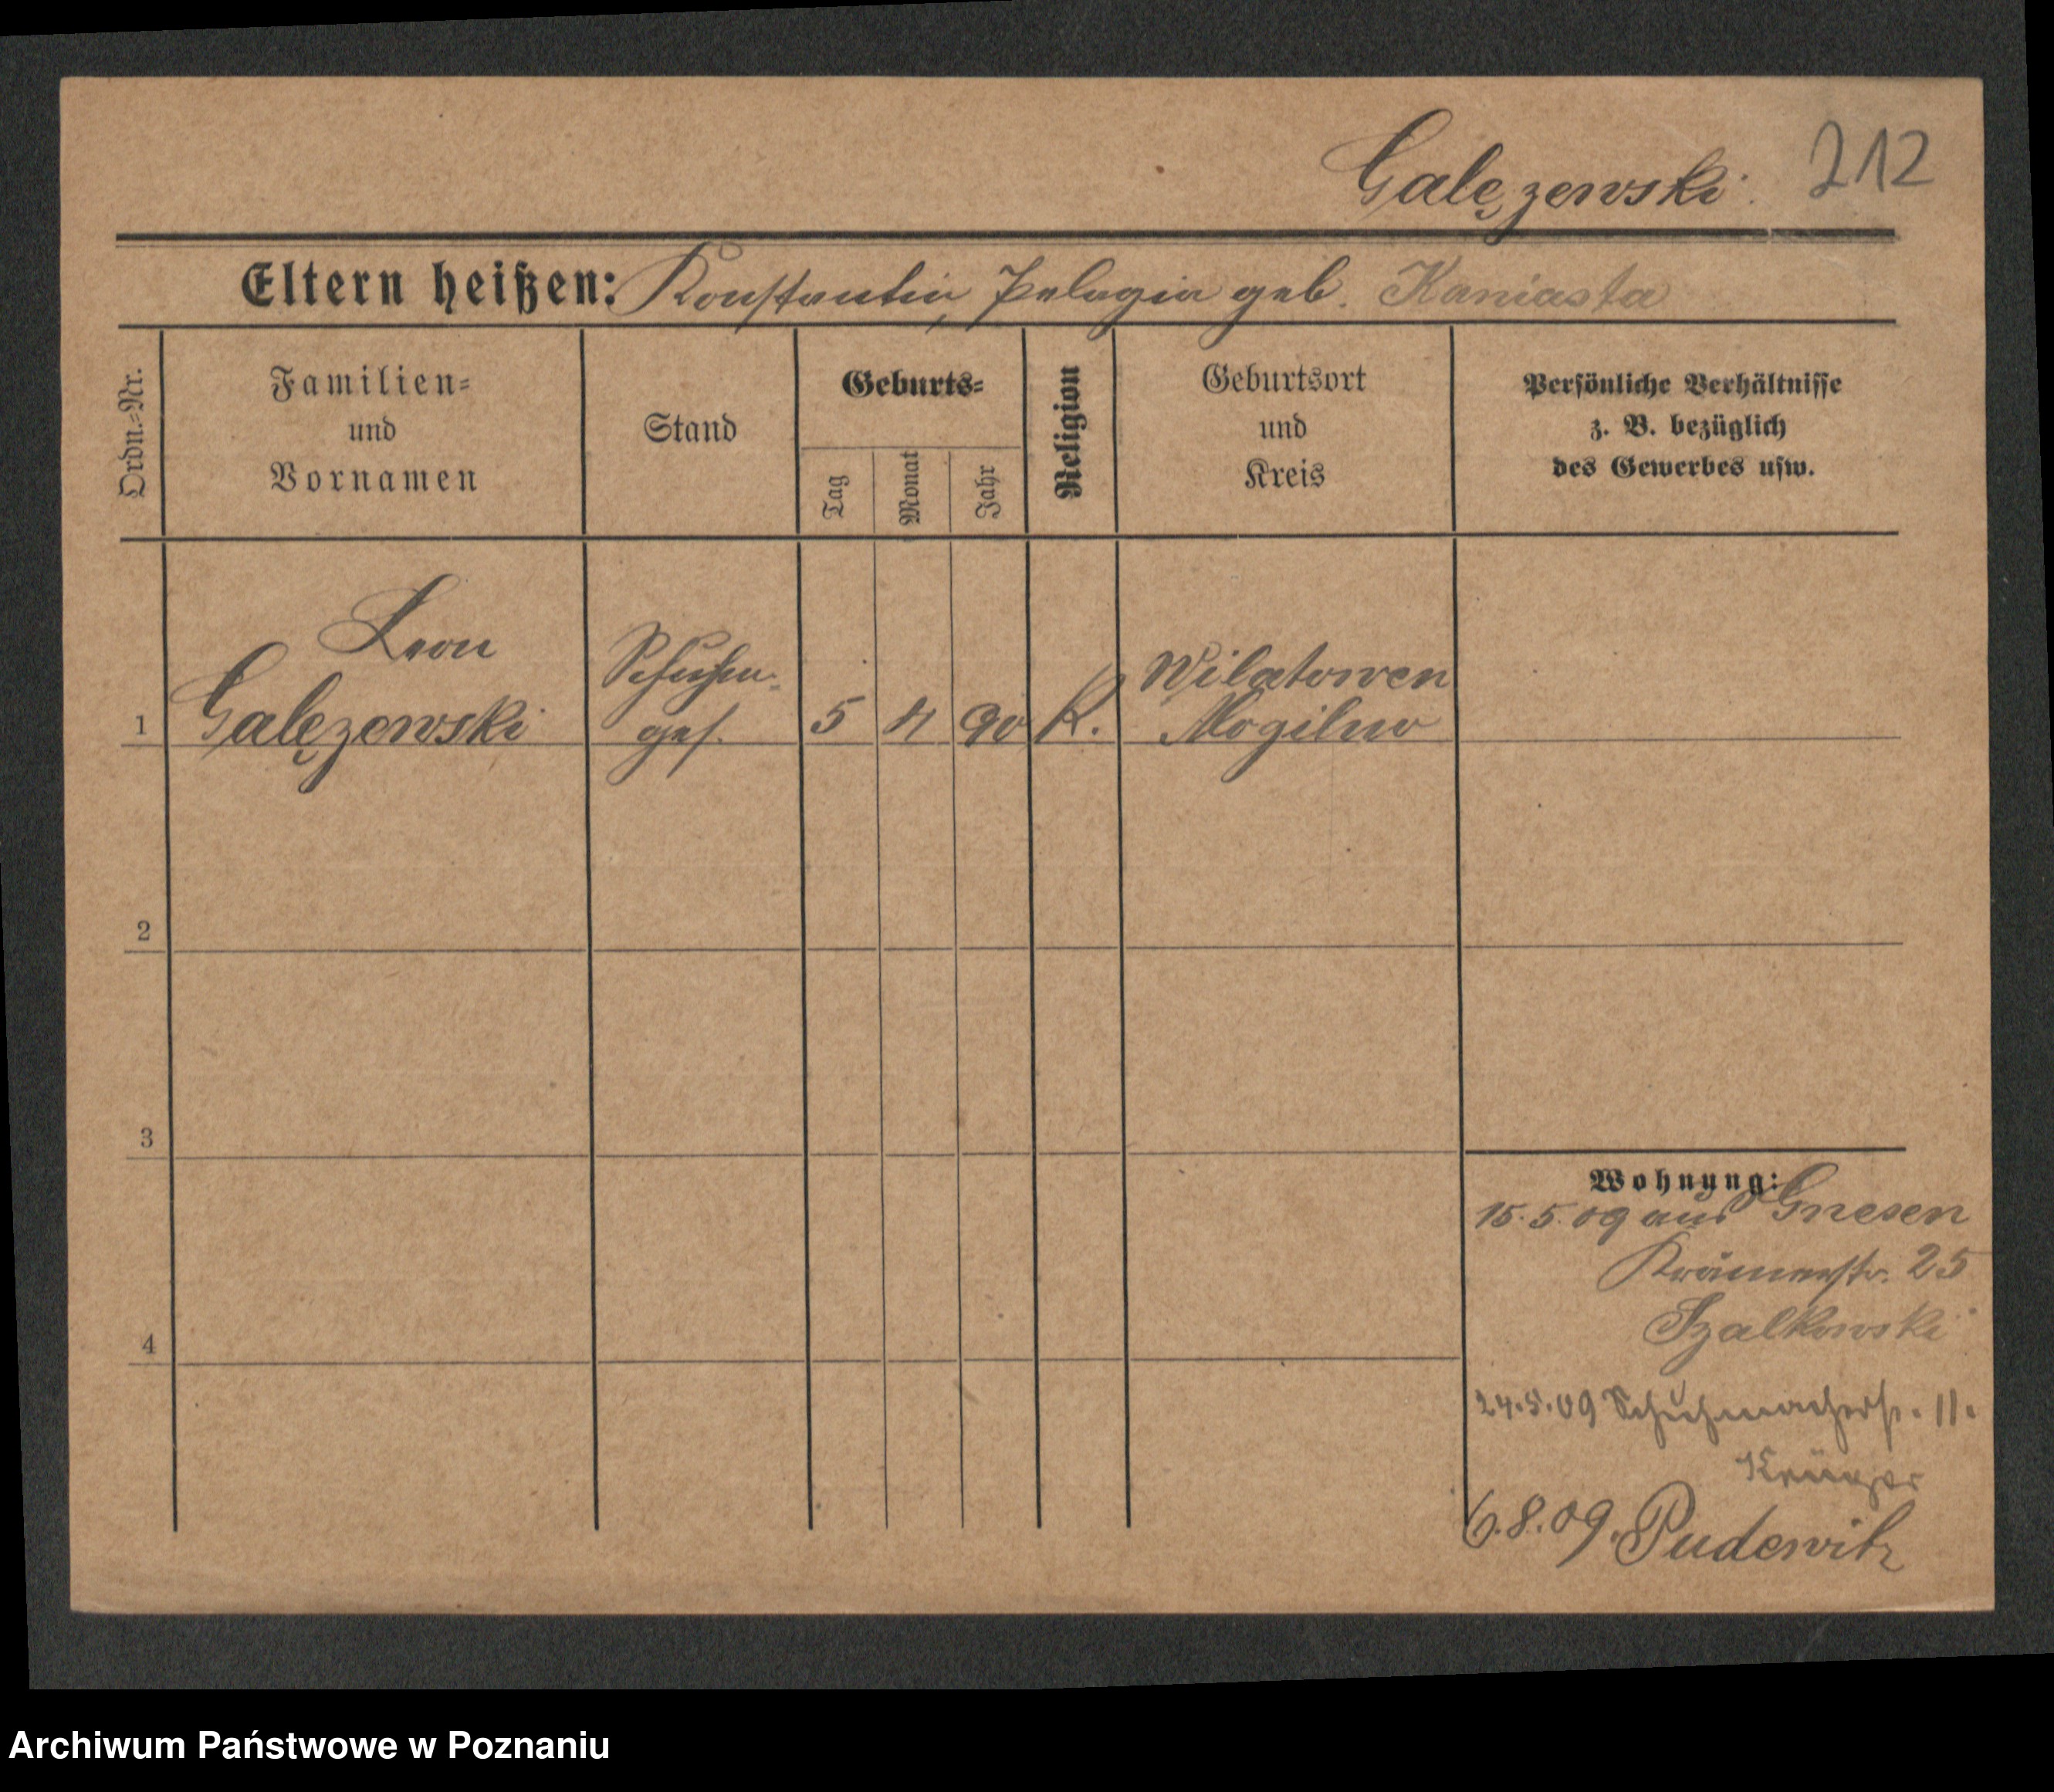 Galęzewski. 212
Eltern heißen: Konstantin, Pelagia geb. Kaniasta
Ordn.=Nr.
Familien=
und
Vornamen
Stand
Geburts=
Tag
Monat
Jahr
Religion
Geburtsort
und
Kreis
Persönliche Verhältnisse
z. B. bezüglich
des Gewerbes usw.
Leon
1 Galęzewski
Schuhm.
ges.
5 4 90 K.
Wilatowen
Mogilno
2
3
4
Wohnung:
15.5.09 aus Gnesen
Krämerstr. 25
Szalkowski
24.5.09 Schuhmacherstr. 11.
Krüger
6.8.09. Pudewitz
Archiwum Państwowe w Poznaniu